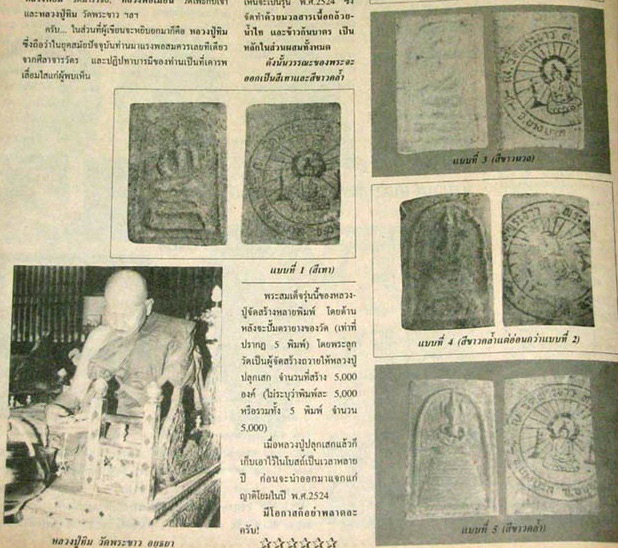 และหลวงปู่ทิม วัดพระขาว ฯลฯ
ครับ... ในส่วนที่ผู้เขียนจะหยิบยกมาก็คือ หลวงปู่ทิม
ซึ่งถือว่าในยุคสมัยปัจจุบันท่านมาแรงพอสมควรเลยทีเดียว
จากศีลาจารวัตร และปฏิปทาบารมีของท่านเป็นที่เคารพ
เลื่อมใสแก่ผู้พบเห็น
เห็นจะเป็นรุ่น พ.ศ.2524 ซึ่ง
จัดทำด้วยมวลสารเนื้อกล้วย-
น้ำไท และข้าวก้นบาตร เป็น
หลักในส่วนผสมทั้งหมด
ดังนั้นวรรณะของพระจะ
ออกเป็นสีเทาและสีขาวคล้ำ
แบบที่ 1 (สีเทา)
พระสมเด็จรุ่นนี้ของหลวง-
ปู่จัดสร้างหลายพิมพ์ โดยด้าน
หลังจะปั๊มตรายางของวัด (เท่าที่
ปรากฏ 5 พิมพ์) โดยพระลูก
วัดเป็นผู้จัดสร้างถวายให้หลวงปู่
ปลุกเสก จำนวนที่สร้าง 5,000
องค์ (ไม่ระบุว่าพิมพ์ละ 5,000
หรือรวมทั้ง 5 พิมพ์ จำนวน
5,000)
เมื่อหลวงปู่ปลุกเสกแล้วก็
เก็บเอาไว้ในโบสถ์เป็นเวลาหลาย
ปี ก่อนจะนำออกมาแจกแก่
ญาติโยมในปี พ.ศ.2524
มีโอกาสก็อย่าพลาดละ
ครับ!
หลวงปู่ทิม วัดพระขาว อยุธยา
แบบที่ 3 (สีขาวนวล)
แบบที่ 4 (สีขาวคล้ำแต่อ่อนกว่าแบบที่ 2)
แบบที่ 5 (สีขาวคล้ำ)